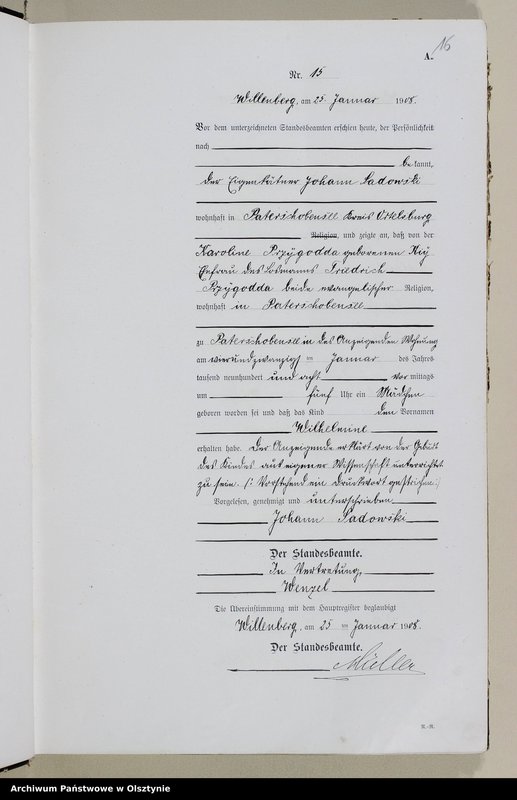 16
A.
Nr. 15
Willenberg, am 25 Januar 1908.
Vor dem unterzeichneten Standesbeamten erschien heute, der Persönlichkeit
nach
bekannt,
der Eigenkätner Johann Sadowski
wohnhaft in Paterschobensee Kreis Ortelsburg
Religion, und zeigte an, daß von der
Karoline Przygodda geborenen Kiy
Ehefrau des Losmanns Friedrich
Przygodda beide evangelischer Religion,
wohnhaft in Paterschobensee
zu Paterschobensee in des Anzeigenden Wohnung
am vierundzwanzigsten Januar des Jahres
tausend neunhundert und acht vormittags
um fünf Uhr ein Mädchen
geboren worden sei und daß das Kind den Vornamen
Wilhelmine
erhalten habe. Der Anzeigende erklärt von der Geburt
des Kindes aus eigener Wissenschaft unterrichtet
zu sein. (: Vorstehend ein Druckwort gestrichen :)
Vorgelesen, genehmigt und unterschrieben
Johann Sadowski
Der Standesbeamte.
In Vertretung,
Wenzel
Die Übereinstimmung mit dem Hauptregister beglaubigt
Willenberg, am 25 ten Januar 1908.
Der Standesbeamte.
Müller
K.-R.
Archiwum Państwowe w Olsztynie